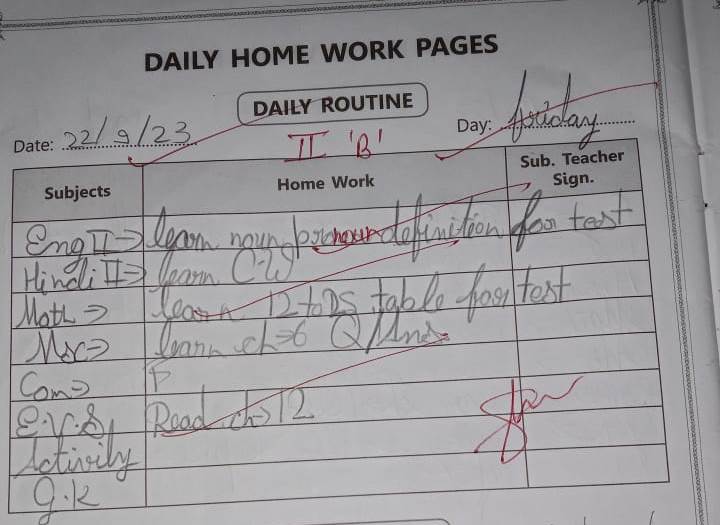 DAILY HOME WORK PAGES
DAILY ROUTINE
Date: 22/9/23 Day: friday
II 'B'
Subjects Home Work Sub. Teacher Sign.
Eng II → learn noun, pronoun definition for test
Hindi II ⇒ learn C.W
Math ⇒ learn 12 to 25 table for test
Msc ⇒ learn ch ⇒ 6 Q/Ans
Com ⇒
E.V.S, Read ch → 12
Activity
g.k